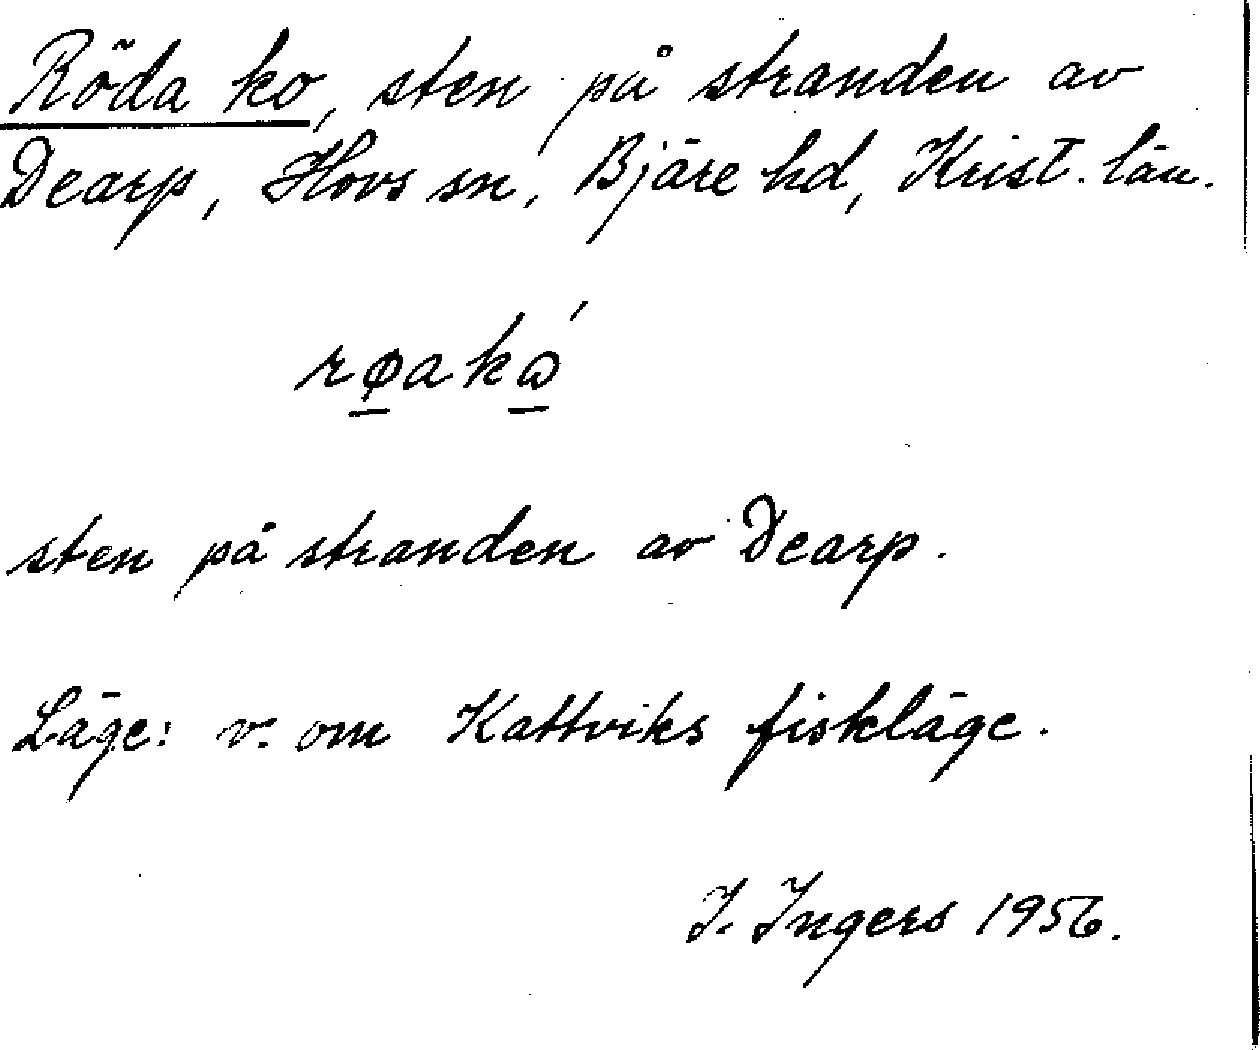 Röda ko, sten på stranden av
Dearp, Hovs sn, Bjäre hd, Krist. län.
rø̱akώ̱
sten på stranden av Dearp.
Läge: v. om Kattviks fiskläge.
I. Ingers 1956.